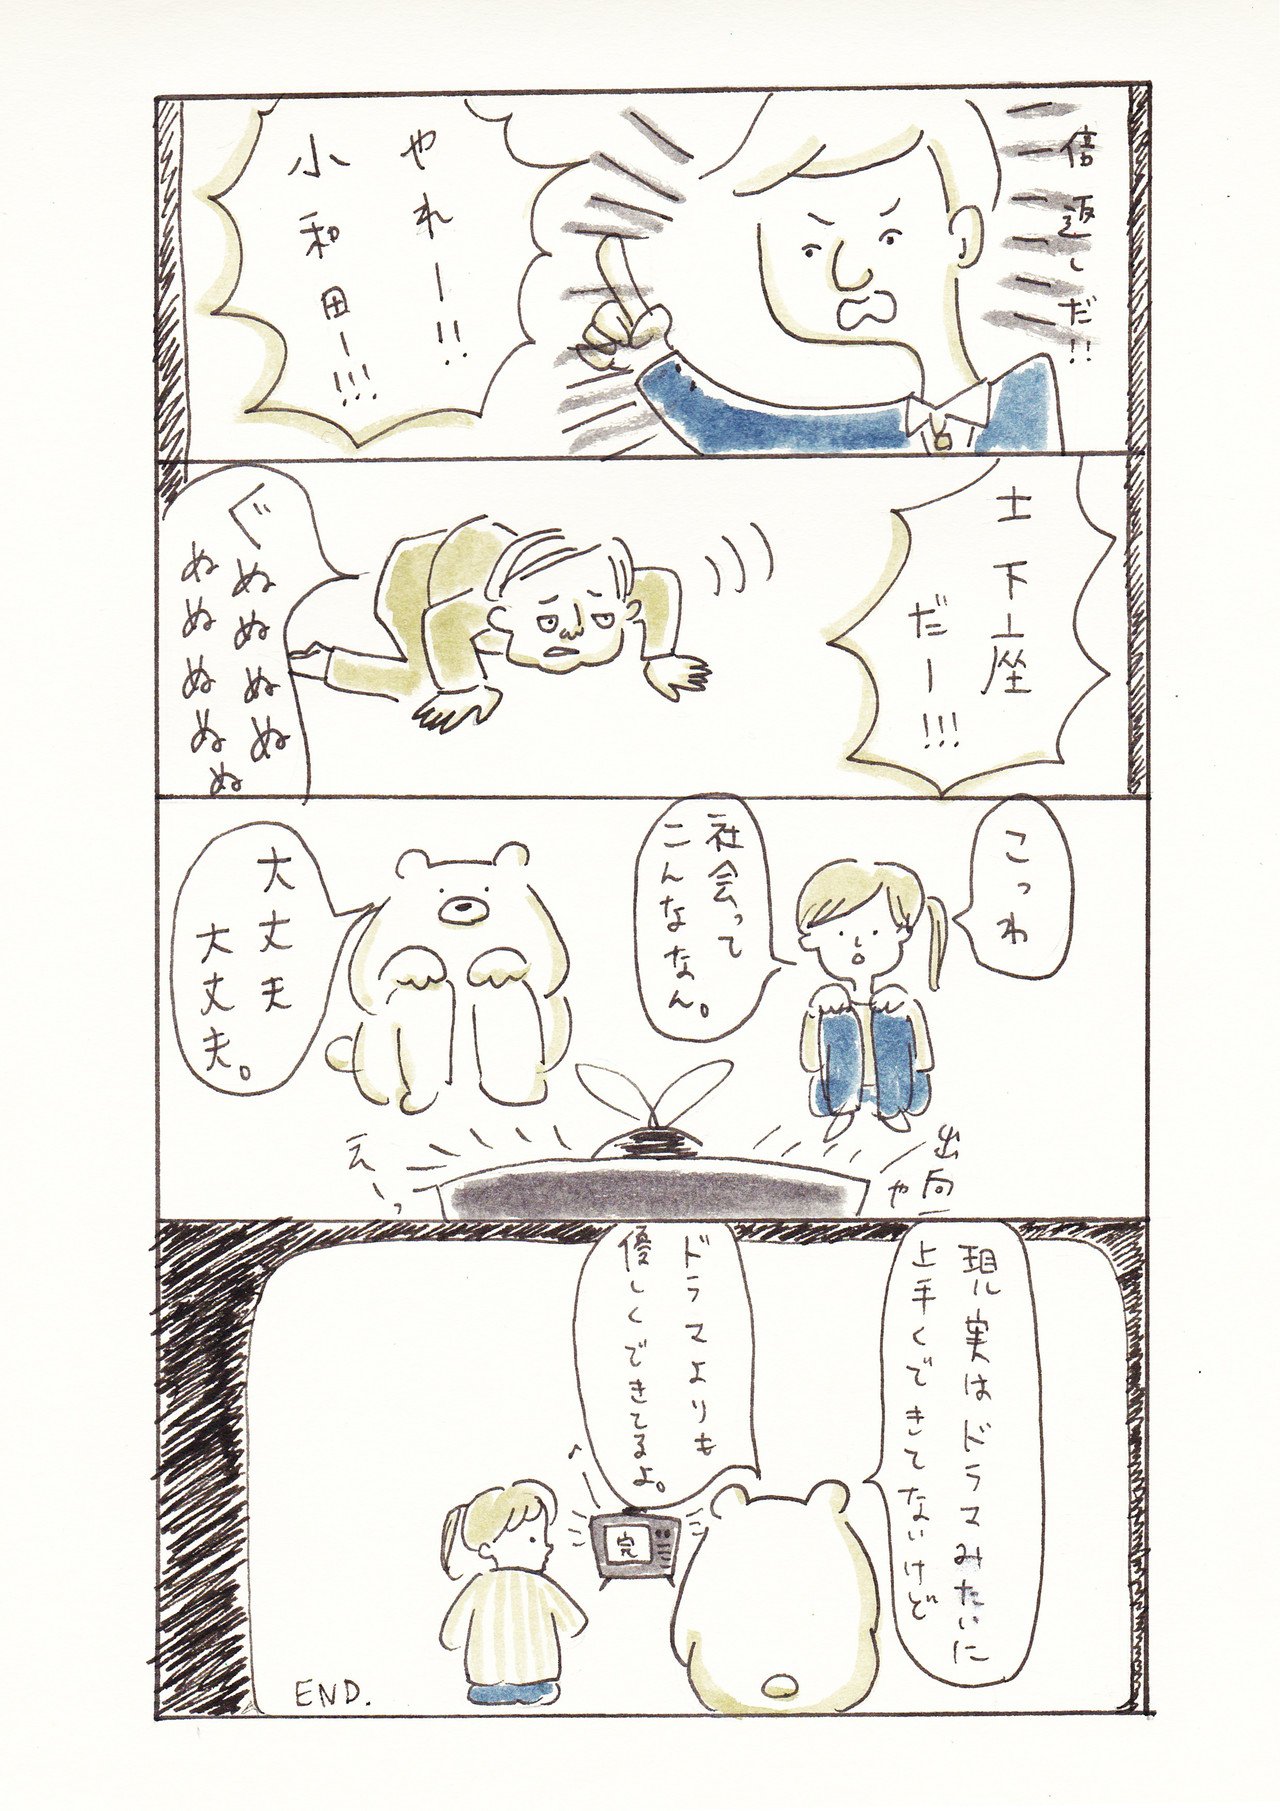 倍返しだ!!
やれー!!
小和田ー!!!
土下座
だー!!!
ぐぬぬぬぬ
ぬぬぬぬぬ
こっわ
社会って
こんななん。
大丈夫
大丈夫。
出向
や
えーっ
現実はドラマみたいに
上手くできてないけど
ドラマよりも
優しくできてるよ。
完
END.